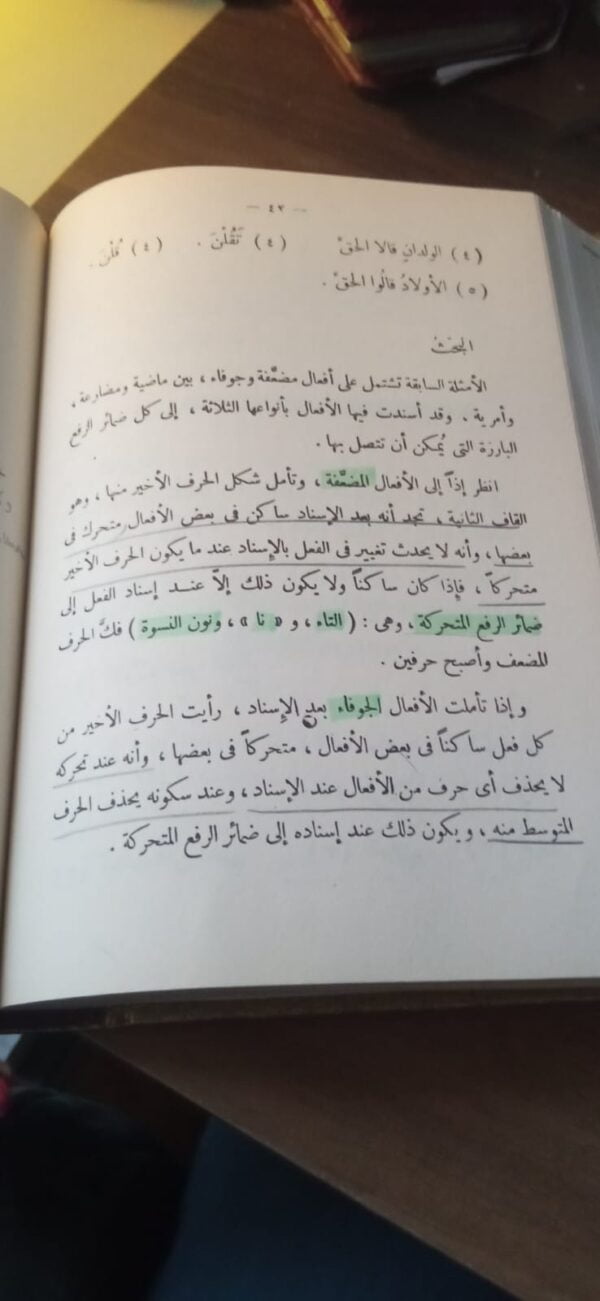 — ٤٢ —
(٤) الولدانِ قالا الحقَّ (٤) تَقُلْنَ . (٤) قُلْنَ .
(٥) الأولادُ قالُوا الحقَّ .
البحْث
الأمثلة السابقة تشتمل على أفعال مضعَّفة وجوفاء ، بين ماضية ومضارعة ،
وأمرية . وقد أسندت فيها الأفعال بأنواعها الثلاثة ، إلى كل ضمائر الرفع
البارزة التى يُمكن أن تتصل بها .
انظر إذاً إلى الأفعال المضعَّفة ، وتأمل شكل الحرف الأخير منها ، وهو
القاف الثانية ، تجد أنه بعد الإسناد ساكن فى بعض الأفعال متحرك فى
بعضها ، وأنه لا يحدث تغيير فى الفعل بالإسناد عند ما يكون الحرف الأخير
متحركاً ، فإذا كان ساكناً ولا يكون ذلك إلاّ عند إسناد الفعل إلى
ضمائر الرفع المتحركة ، وهى : ( التاء ، و « نا » ، ونون النسوة ) فكَّ الحرف
المضعف وأصبح حرفين .
و إذا تأملت الأفعال الجوفاء بعد الإسناد ، رأيت الحرف الأخير من
كل فعل ساكناً فى بعض الأفعال ، متحركاً فى بعضها ، وأنه عند تحركه
لا يحذف أى حرف من الأفعال عند الإسناد ، وعند سكونه يحذف الحرف
المتوسط منه ، ويكون ذلك عند إسناده إلى ضمائر الرفع المتحركة .